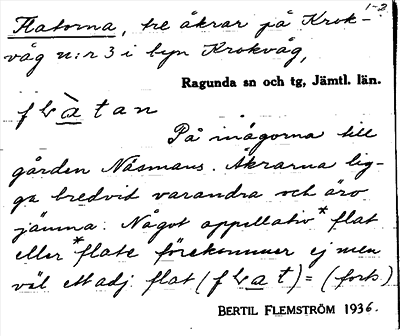 1-2
Flatorna, tre åkrar på Krok-
våg n:r 3 i byn Krokvåg,
Ragunda sn och tg, Jämtl. län.
På inägorna till
gården Näsmans. Åkrarna lig-
ga bredvid varandra och äro
jämna. Något appellativ *flat
eller *flate förekommer ej men
väl ett adj. flat ( ) = (forts)
BERTIL FLEMSTRÖM 1936.